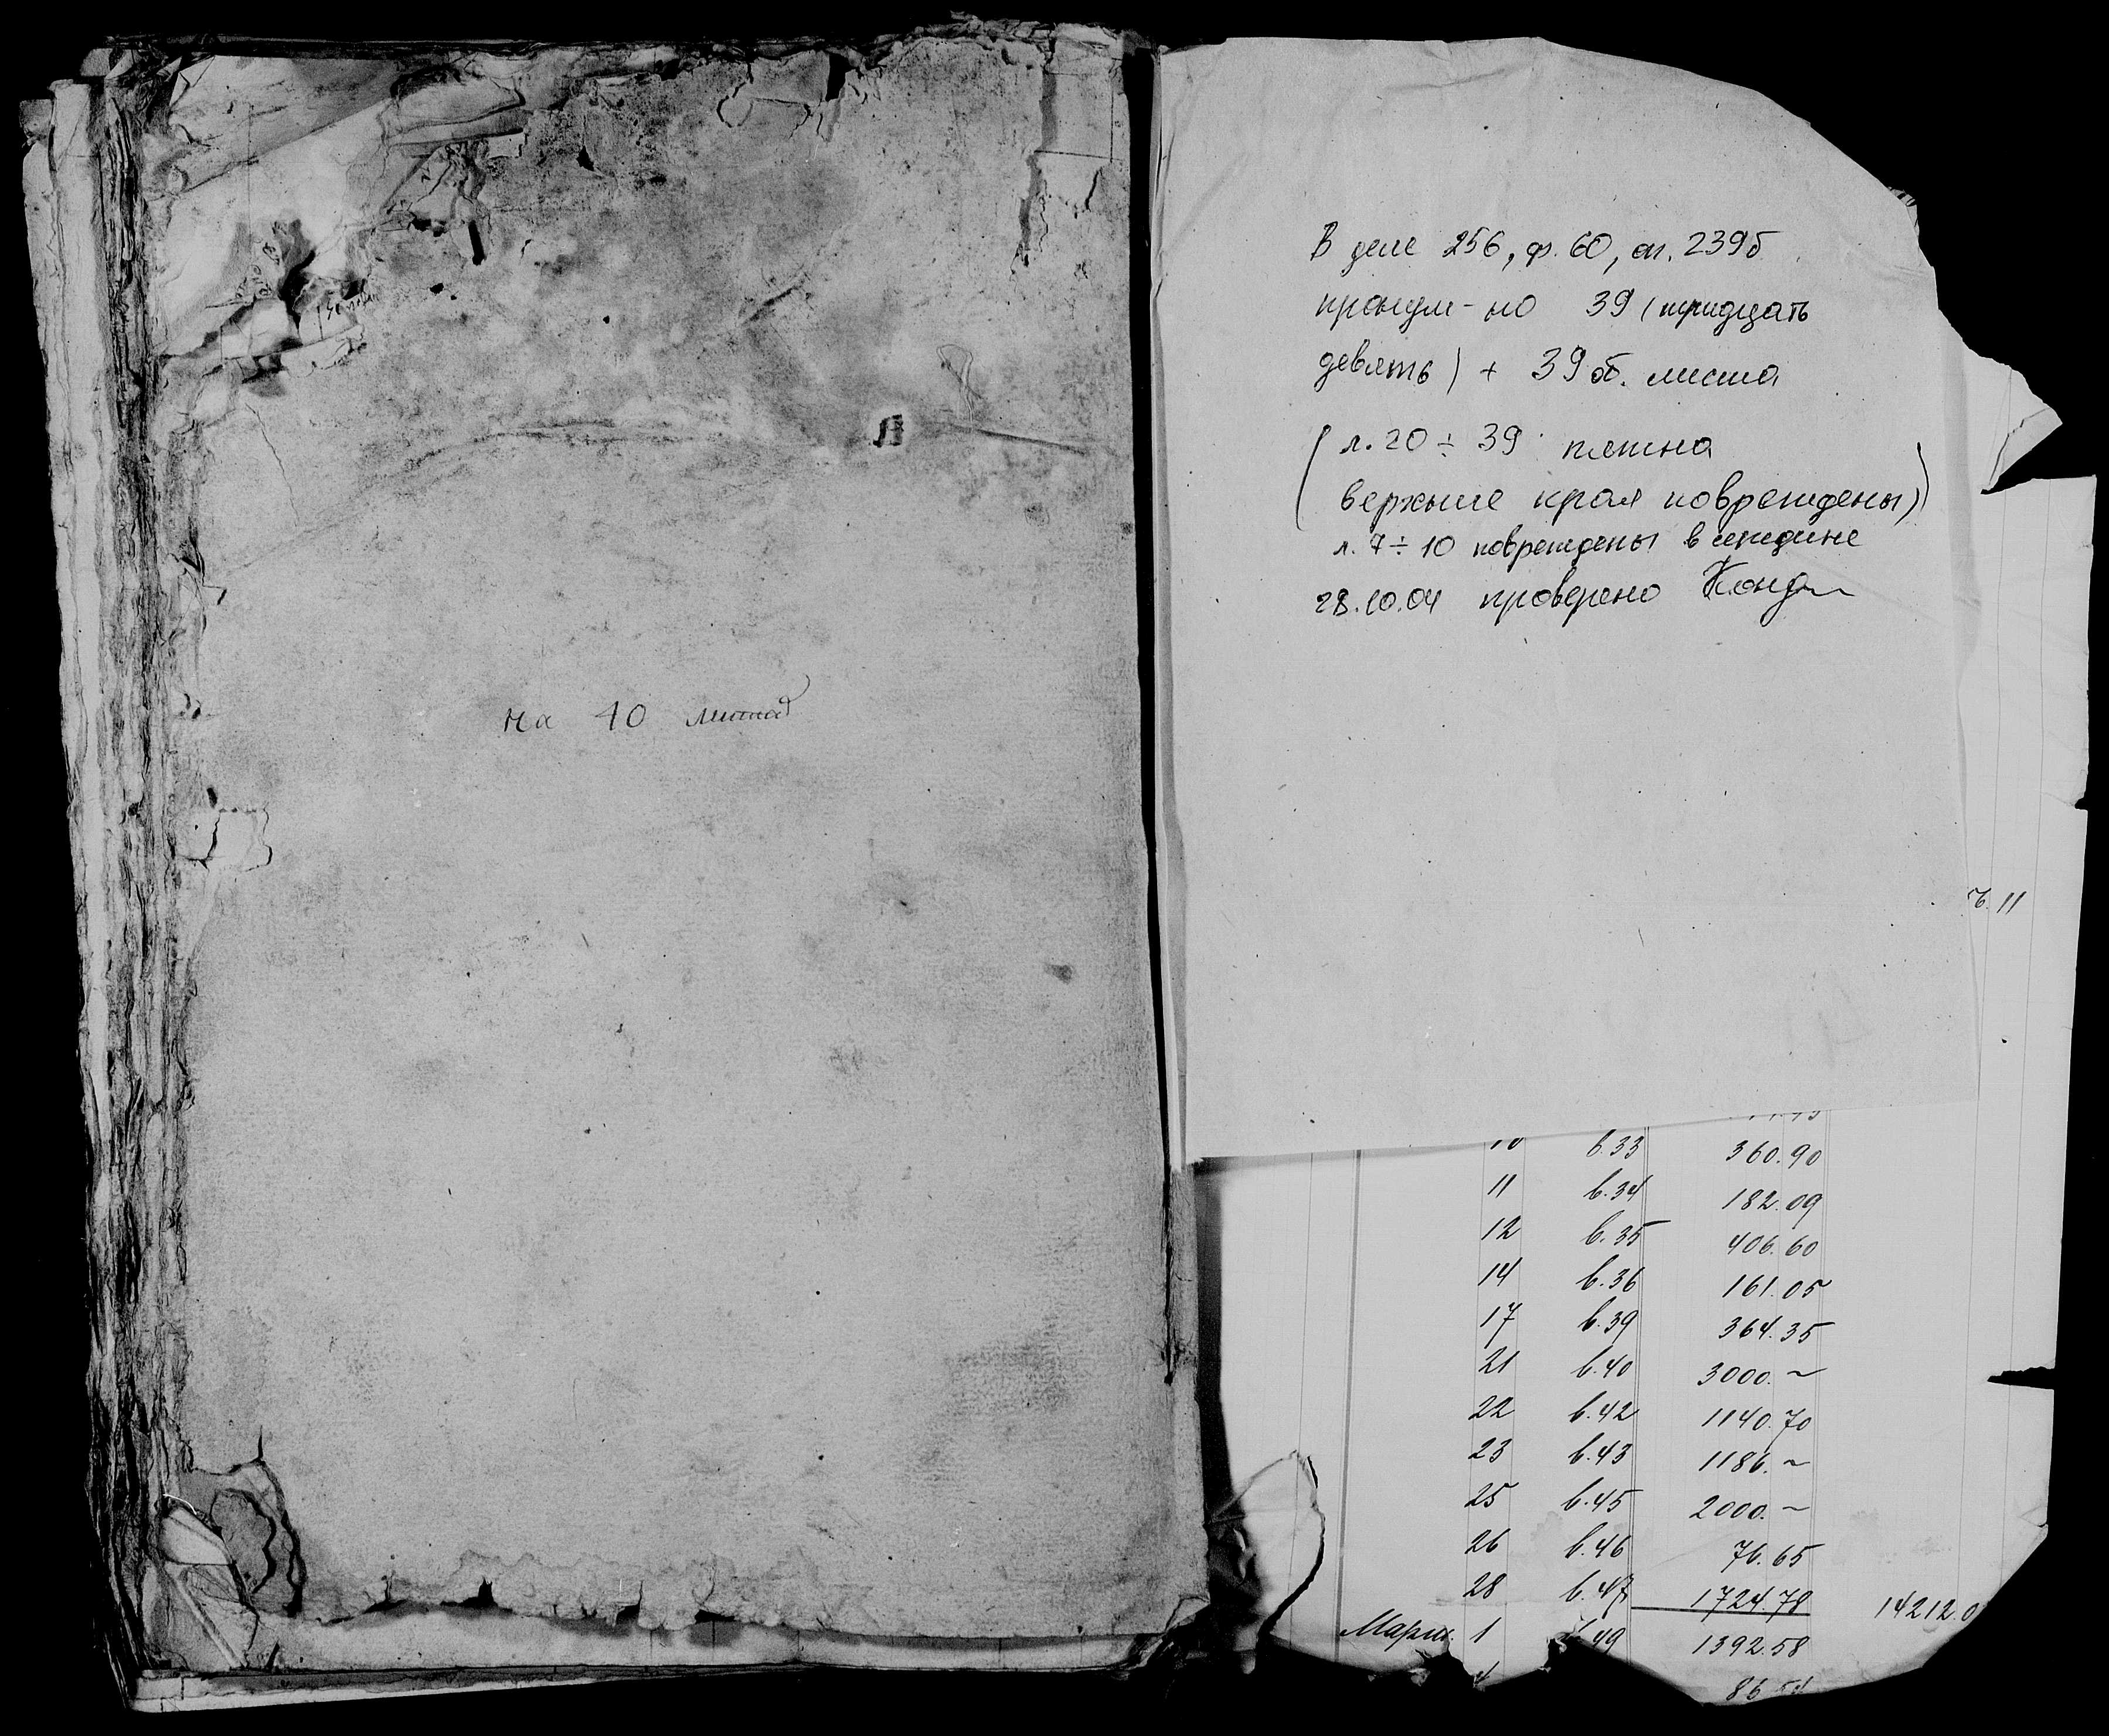 на 40 листах
В деле 256, ф. 60, оп. 239б
пронум-но 39 (тридцать
девять) + 39 об. листа
(л. 20 ÷ 39 пятна
верхние края повреждены)
л. 7 ÷ 10 повреждены в середине
28.10.04 проверено
11
10 b.33 360.90
11 b.34 182.09
12 b.35 406.60
14 b.36 161.05
17 b.39 364.35
21 b.40 3000.~
22 b.42 1140.70
23 b.43 1186.~
25 b.45 2000.~
26 b.46 76.65
28 b.47 1724.78 14212.0
Март. 1 49 1392.58
86